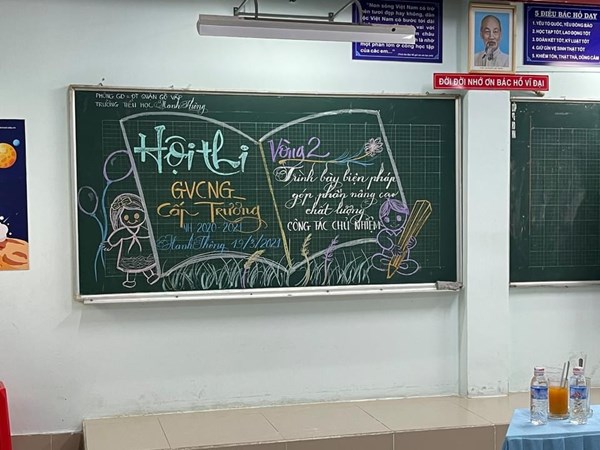 "Non sông Việt Nam có trở
nên tươi đẹp hay không, dân
tộc Việt Nam có bước tới đài
một phần lớn ở công học tập
của các em..."
5 ĐIỀU BÁC HỒ DẠY
1. YÊU TỔ QUỐC, YÊU ĐỒNG BÀO
2. HỌC TẬP TỐT, LAO ĐỘNG TỐT
3. ĐOÀN KẾT TỐT, KỶ LUẬT TỐT
4. GIỮ GÌN VỆ SINH THẬT TỐT
5. KHIÊM TỐN, THẬT THÀ, DŨNG CẢM
ĐỜI ĐỜI NHỚ ƠN BÁC HỒ VĨ ĐẠI
PHÒNG GD - ĐT QUẬN GÒ VẤP
TRƯỜNG TIỂU HỌC Hanh Thông
Hội thi
GVCNG
Cấp Trường
NH 2020-2021
Hanh Thông, 19/3/2021
Vòng 2
Trình bày biện pháp
góp phần nâng cao
chất lượng
CÔNG TÁC CHỦ NHIỆM